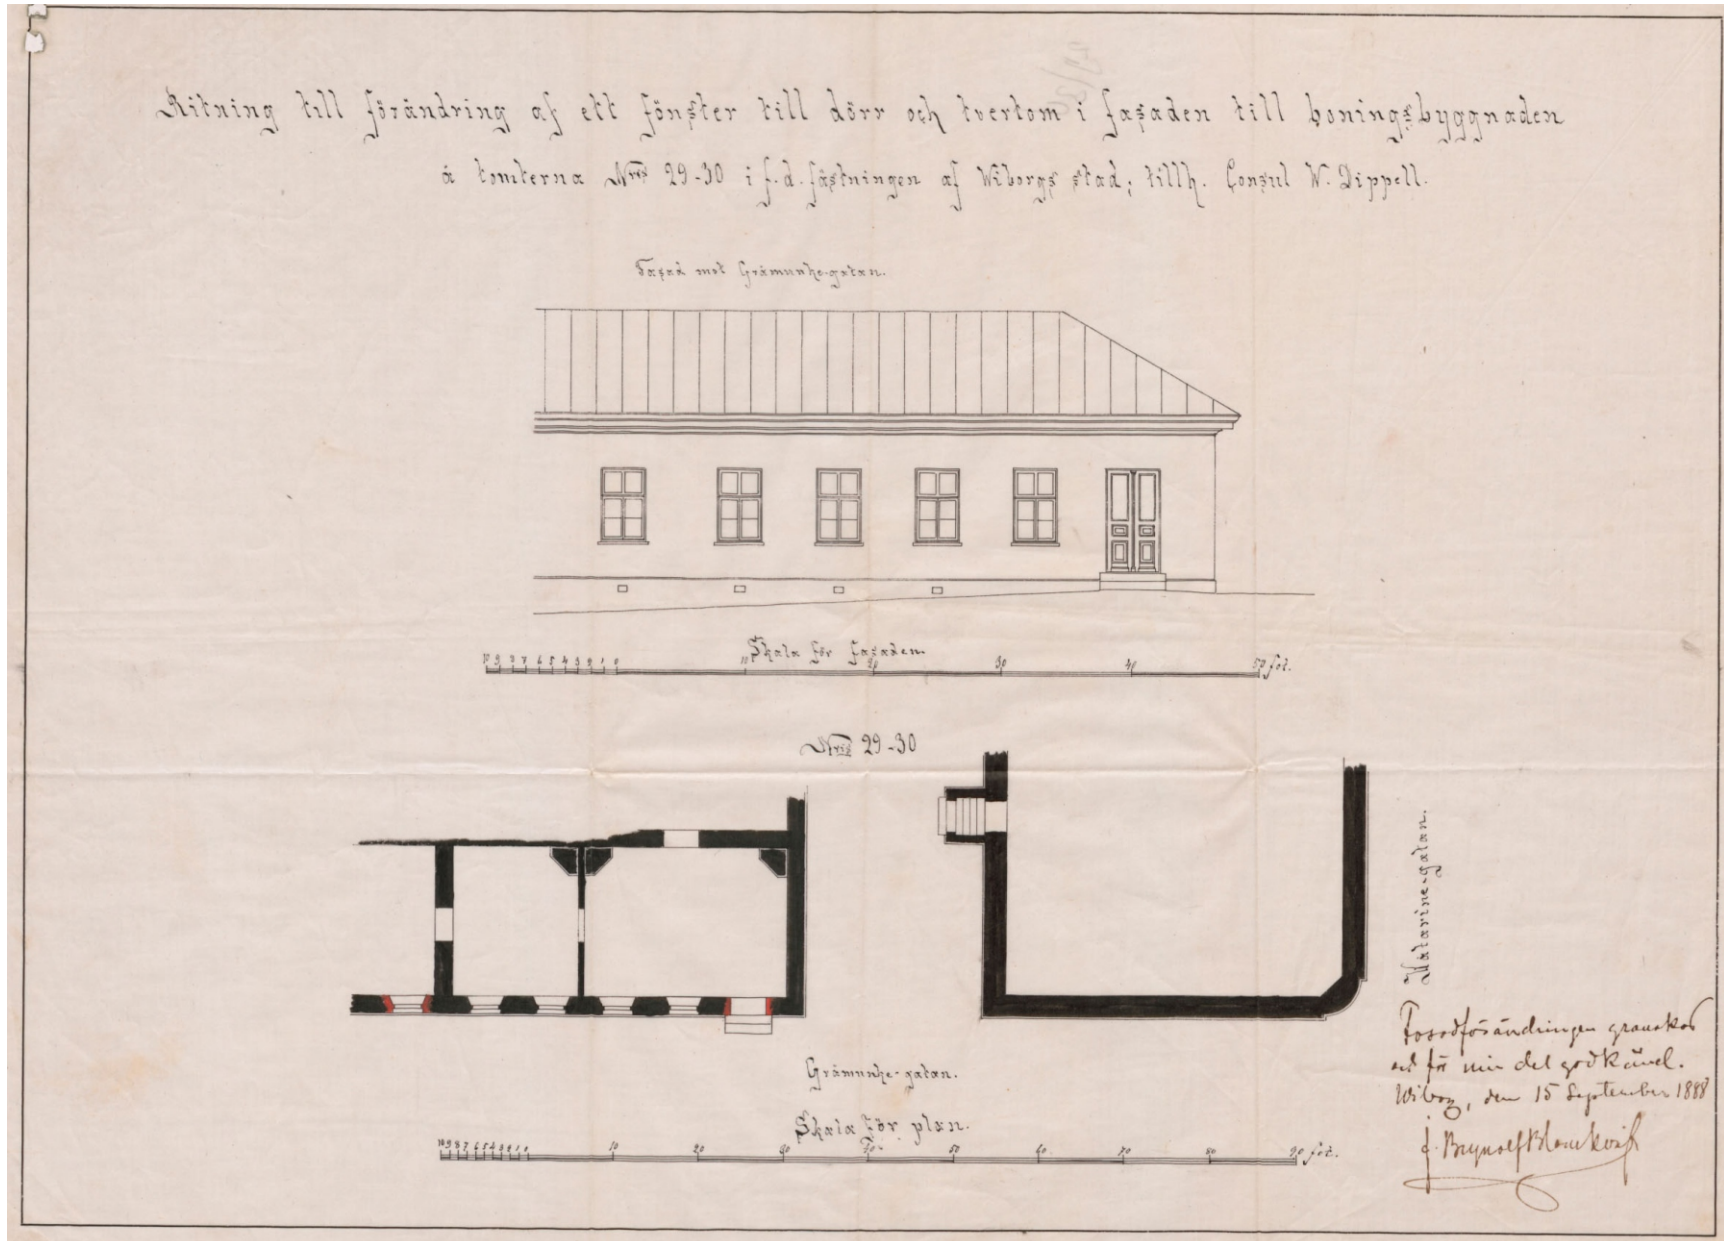 Ritning till förändring af ett fönster till dörr och tvertom i fasaden till boningsbyggnaden
å tomterna Nris 29-30 i f.d. fästningen af Wiborgs stad, tillh. Consul W. Dippell.
Fasad mot Gråmunke-gatan.
Skala för fasaden.
10 9 8 7 6 5 4 3 2 1 0 10 20 30 40 50 fot.
Nris 29-30
Katarine-gatan.
Gråmunke-gatan.
Skala för plan.
10 9 8 7 6 5 4 3 2 1 0 10 20 30 40 50 60 70 80 90 fot.
Fasadförändringen granskad
och för min del godkänd.
Wiborg, den 15 September 1888
J. Brynolf Blomkvist